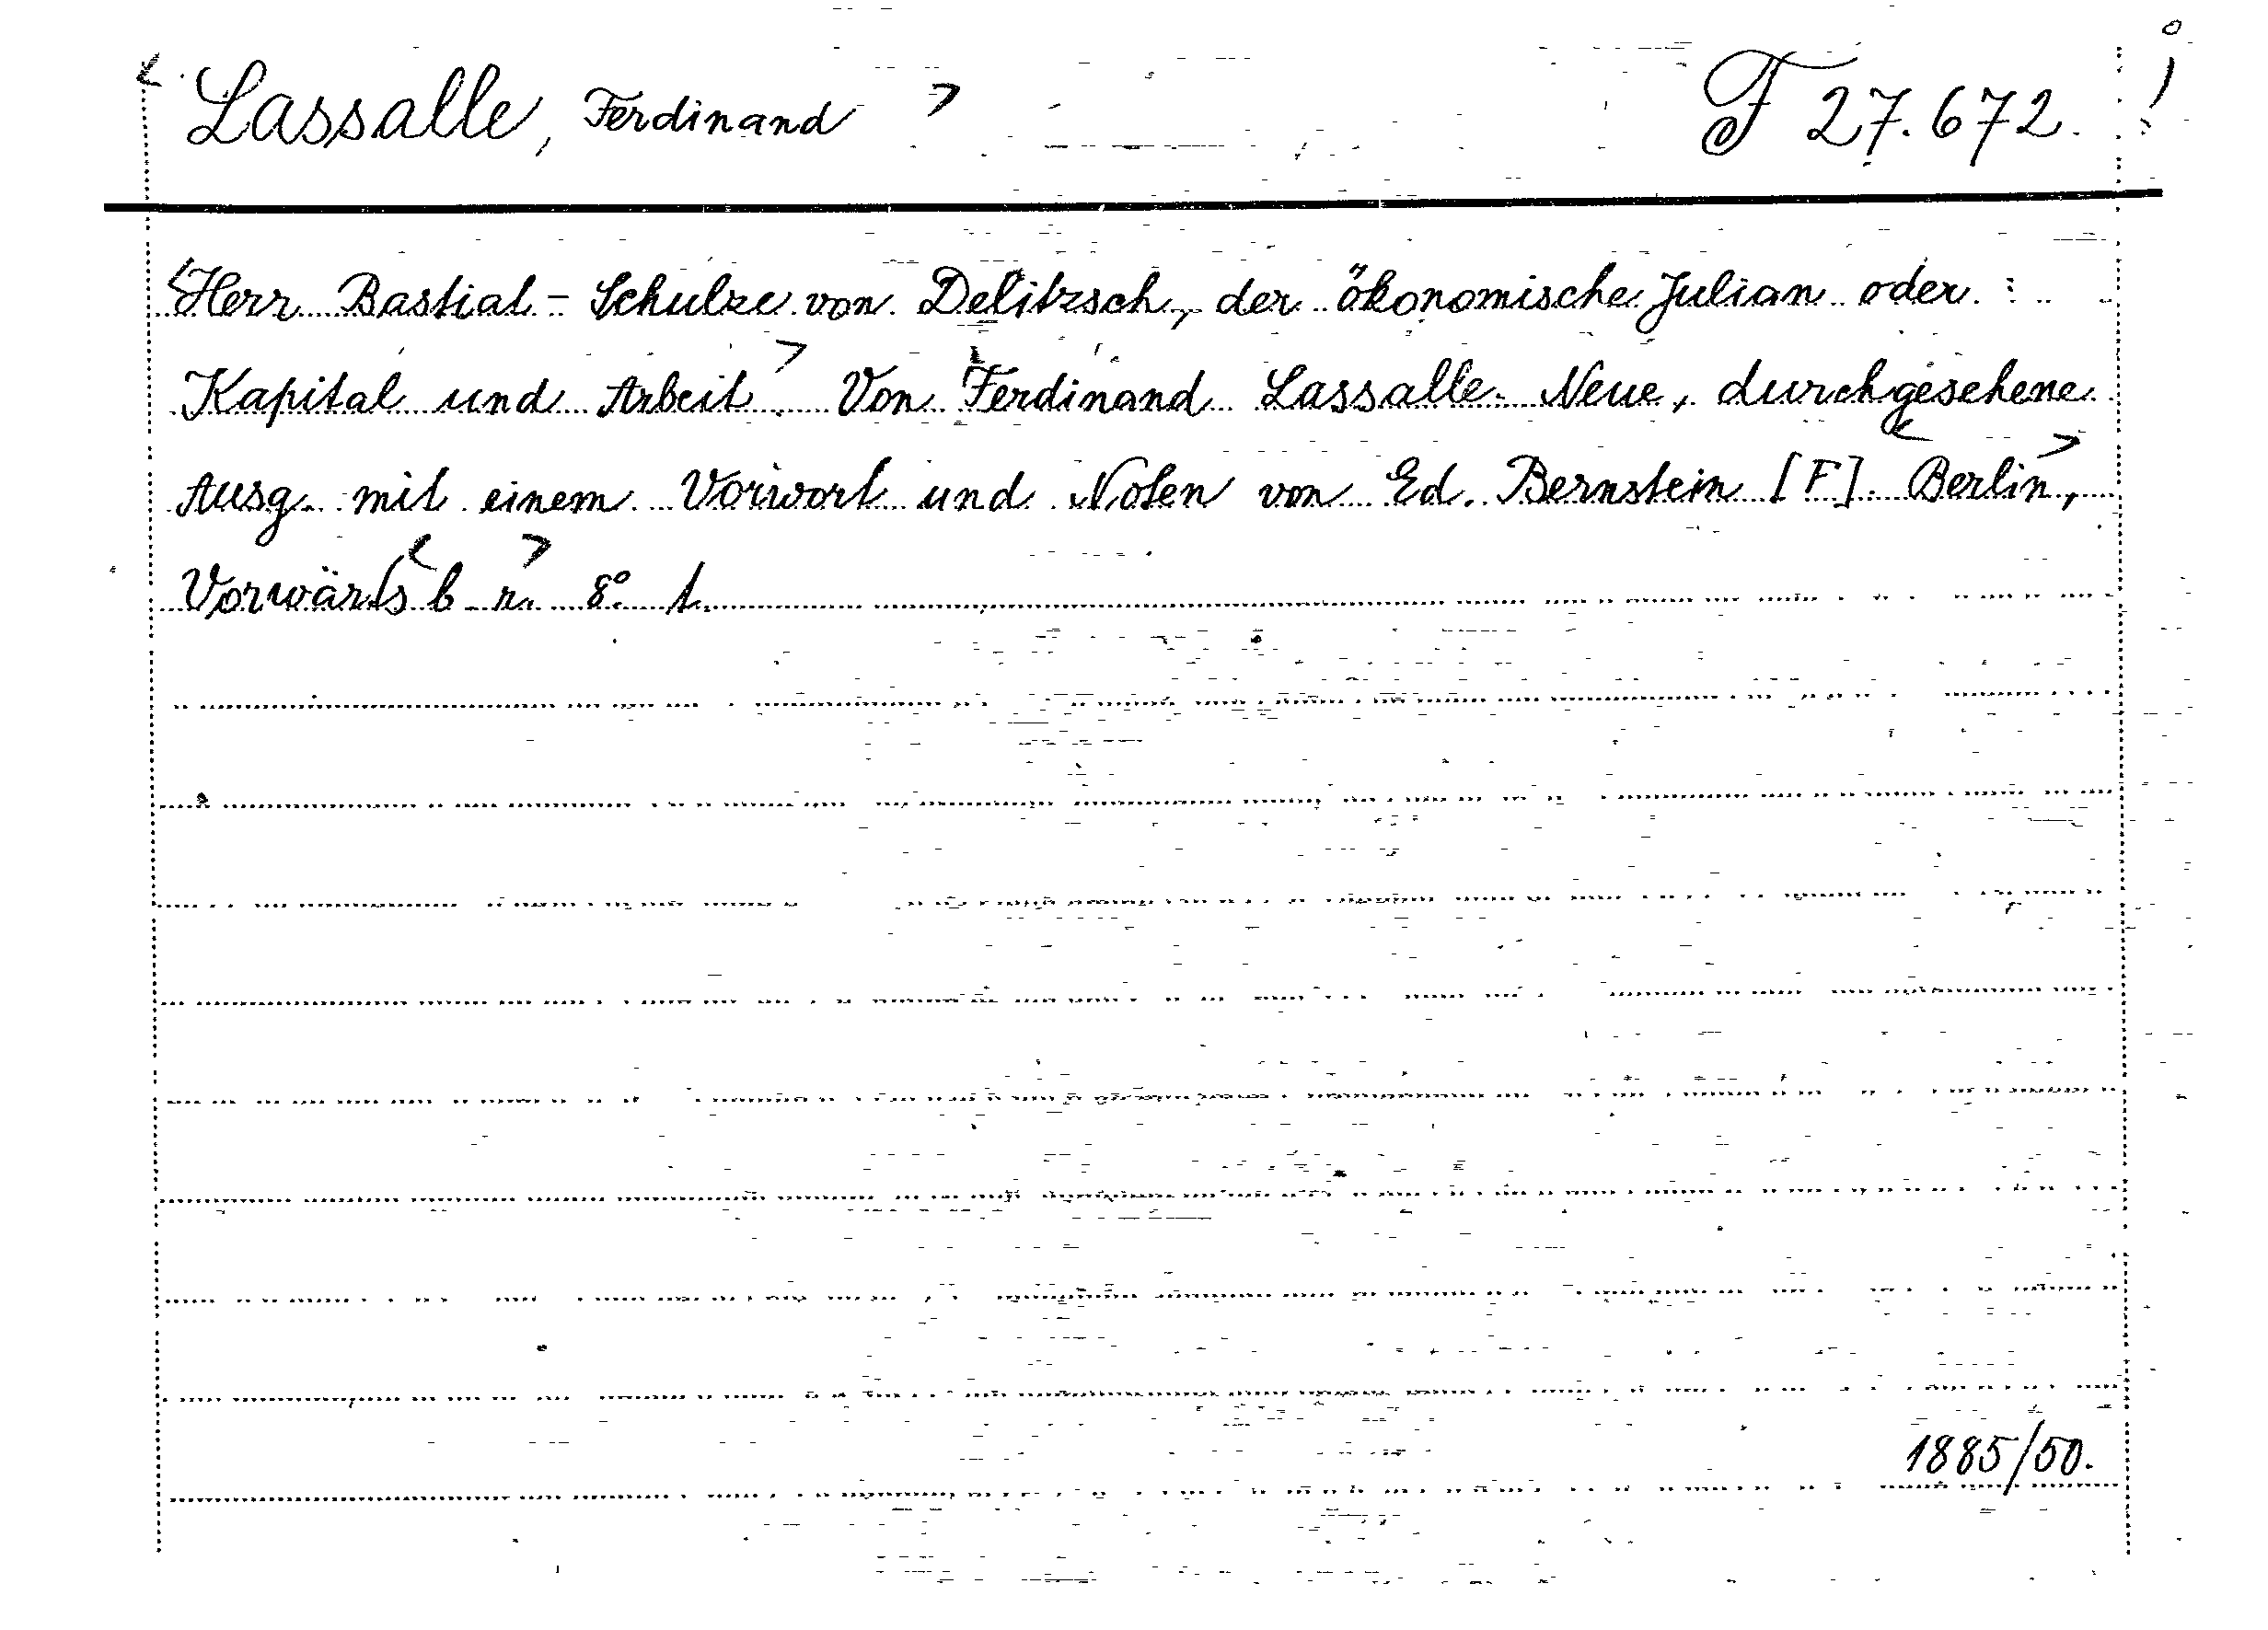 < Lassalle, Ferdinand > F 27.672.
<Herr Bastiat-Schulze von Delitzsch, der ökonomische Julian oder:
Kapital und Arbeit>. Von Ferdinand Lassalle. Neue, durchgesehene
Ausg. mit einem Vorwort und Noten von Ed. Bernstein [F]. <Berlin>,
Vorwärts <b n.> 8° 1.
1885/50.